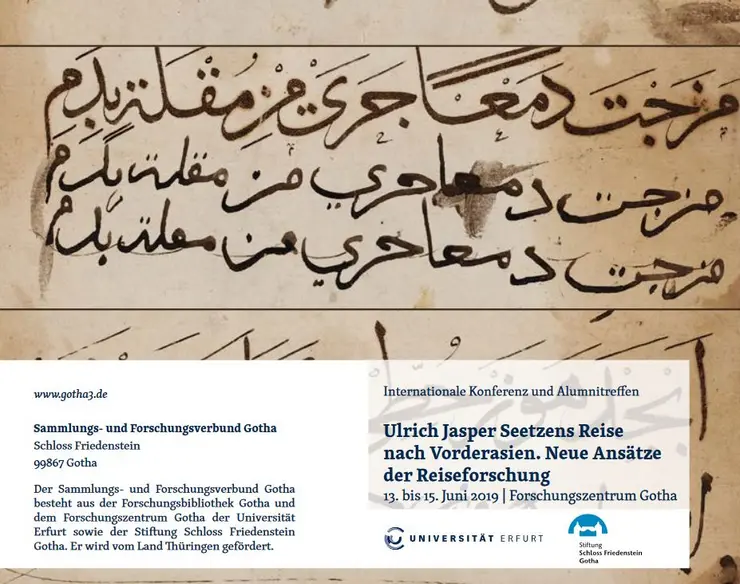 مزجت دمعًا جَرَي مِن مُقلَة بِدَمِ
مزجت دمعا جري من مقلة بدم
مزجت دمعا جري من مقلة بدم
www.gotha3.de
Sammlungs- und Forschungsverbund Gotha
Schloss Friedenstein
99867 Gotha
Der Sammlungs- und Forschungsverbund Gotha
besteht aus der Forschungsbibliothek Gotha und
dem Forschungszentrum Gotha der Universität
Erfurt sowie der Stiftung Schloss Friedenstein
Gotha. Er wird vom Land Thüringen gefördert.
Internationale Konferenz und Alumnitreffen
Ulrich Jasper Seetzens Reise
nach Vorderasien. Neue Ansätze
der Reiseforschung
13. bis 15. Juni 2019 | Forschungszentrum Gotha
UNIVERSITÄT ERFURT
Stiftung
Schloss Friedenstein
Gotha